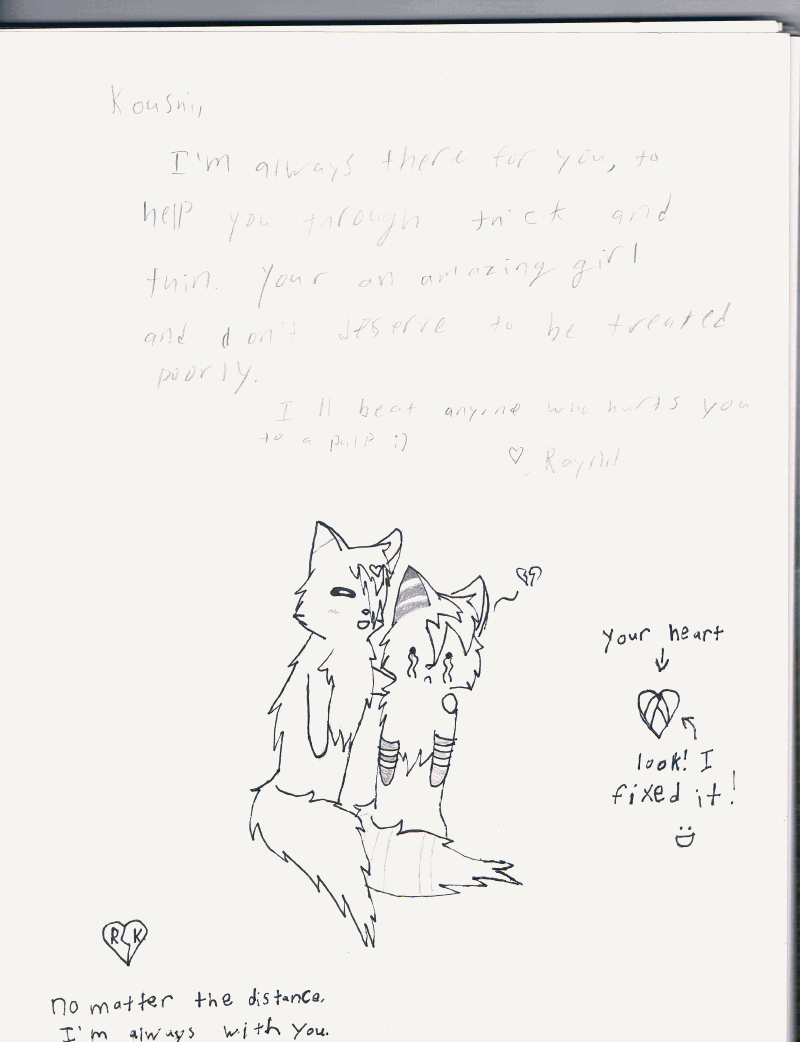 Kousni,
I'm always there for you, to
help you through thick and
thin. Your an amazing girl
and don't deserve to be treated
poorly.
I'll beat anyone who hurts you
to a pulp ;)
♡,
your heart
look! I
fixed it!
R K
No matter the distance,
I'm always with you.